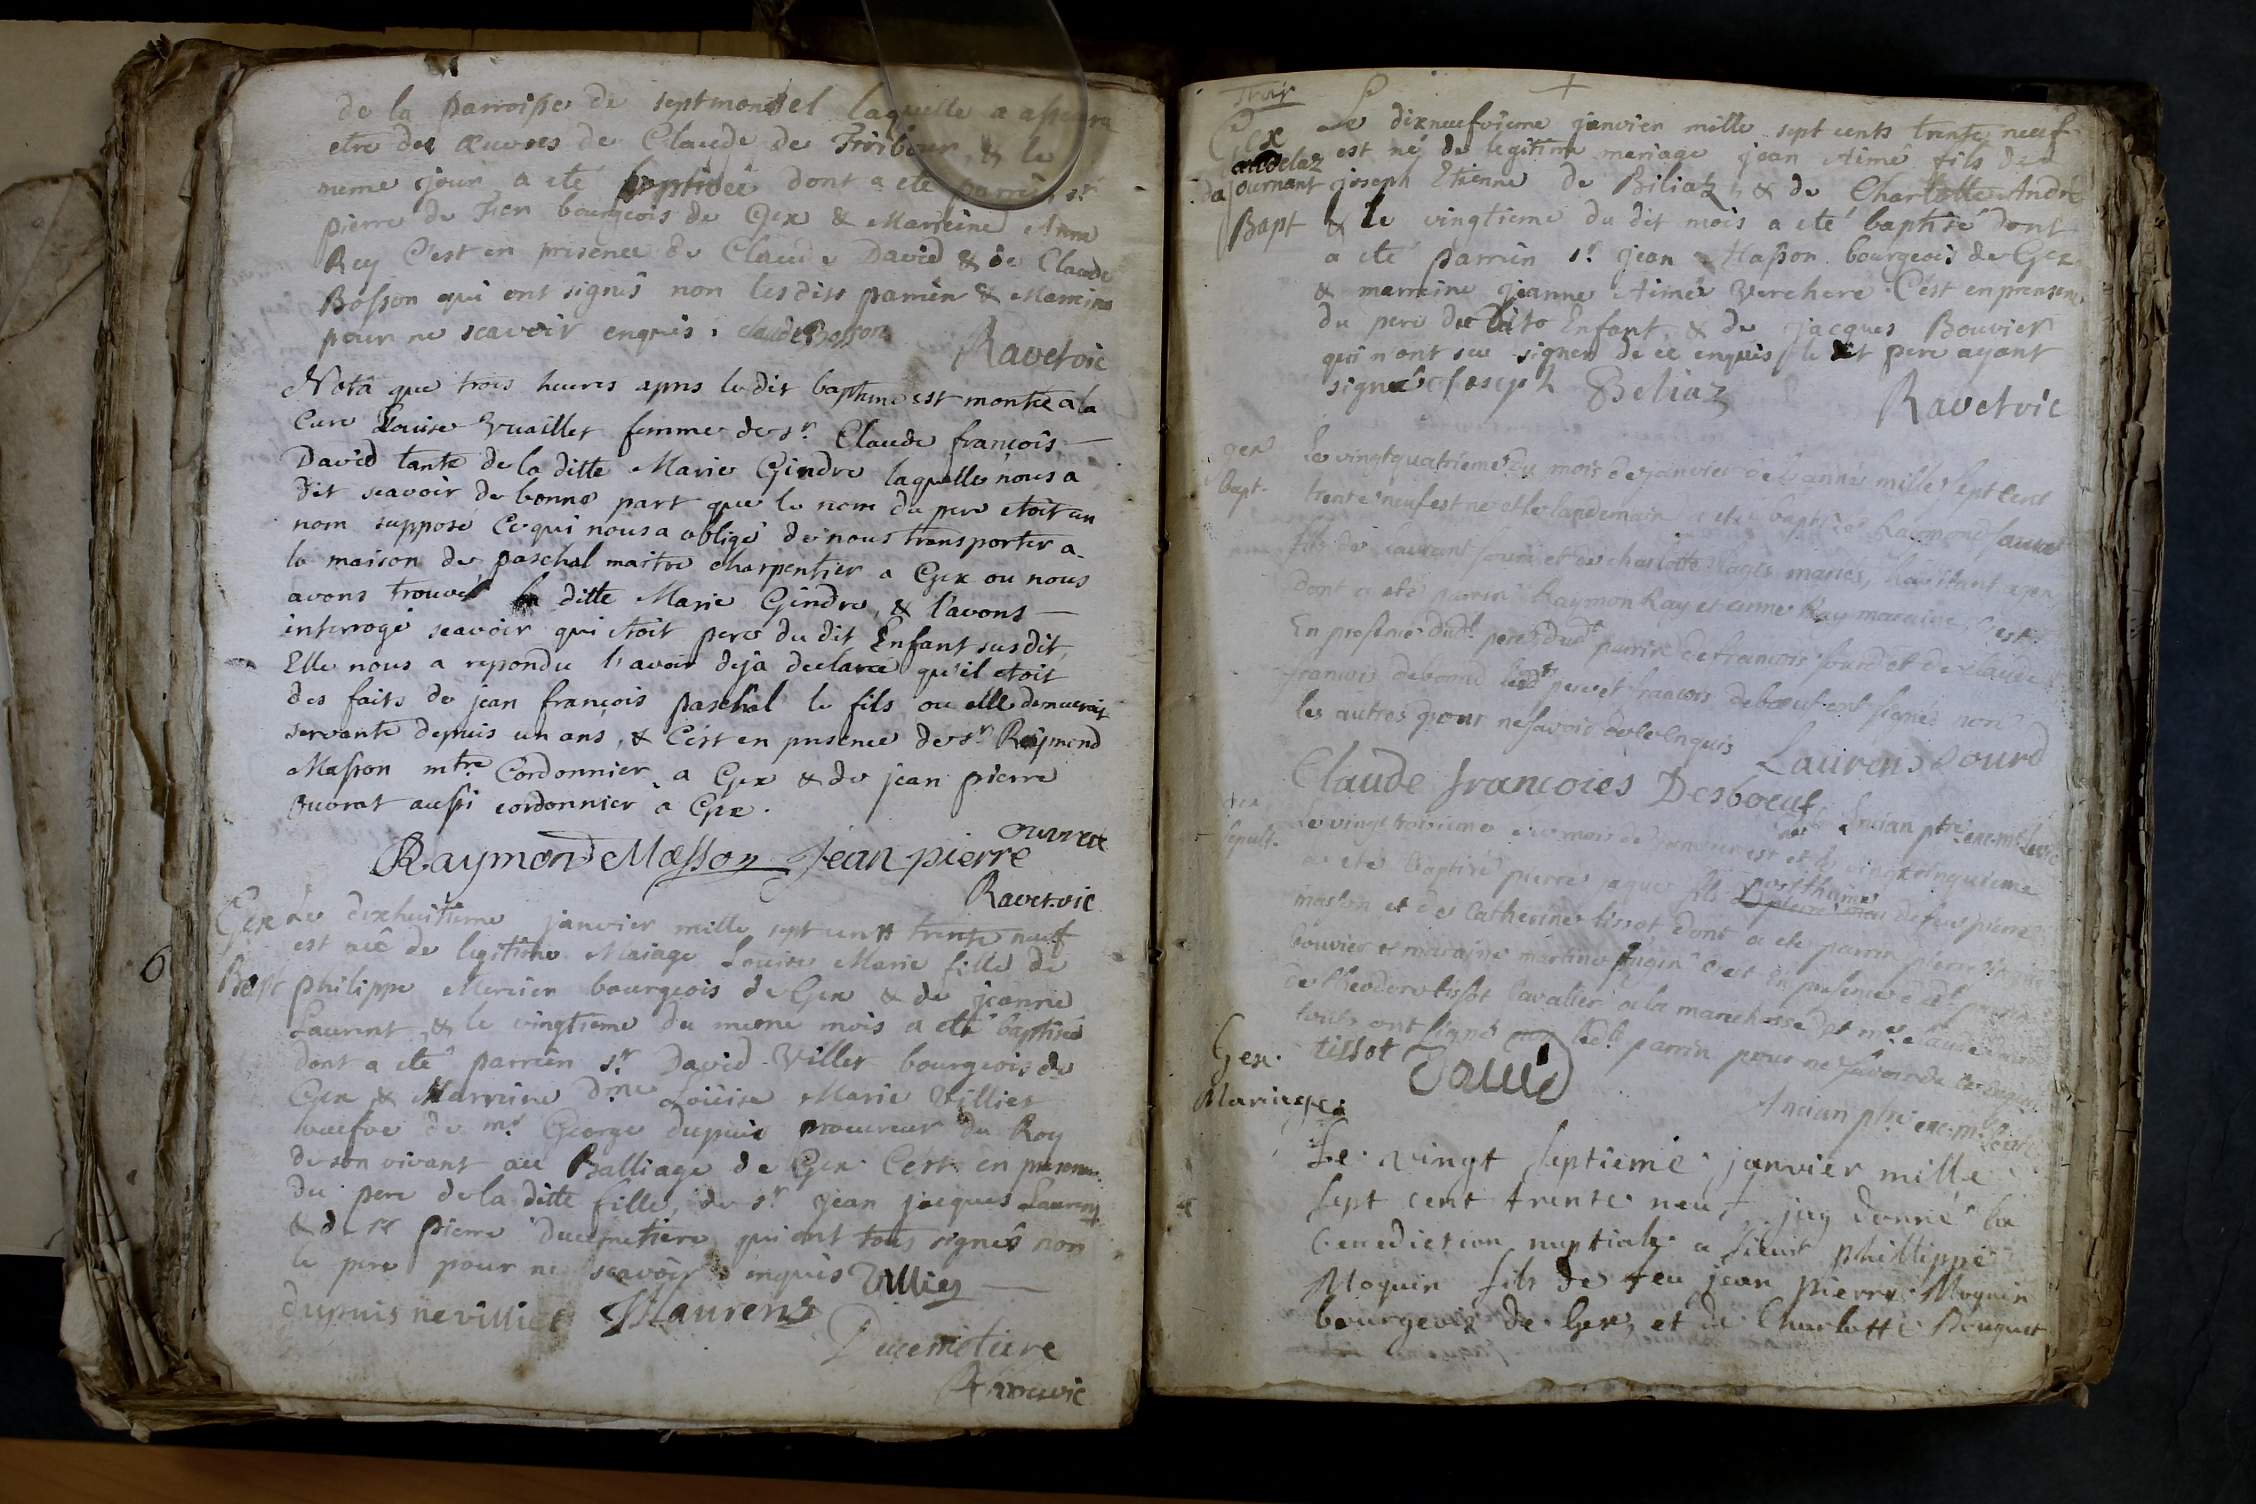 de la parroisse de septmoncel laquelle a assuré
etre des œuvres de Claude de Fribour, & le
meme jour a eté baptisée dont a eté parrein sr
pierre de Fier bourgeois de Gex & Marreine Anne
Rey C'est en presence de Claude David & de Claude
Bosson qui ont signés non lesdits parrein & Marreine
pour ne scavoir enquis. claude Bosson
Ravet vic
Nota que trois heures apres ledit baptheme est montée a la
Cure Louise Vuaillet femme de sr Claude françois
David tante de la ditte Marie Gindre laquelle nous a
dit scavoir de bonne part que le nom du pere etoit un
nom supposé Ce qui nous a obligé de nous transporter a
la maison de paschal maitre charpentier a Gex ou nous
avons trouvé la ditte Marie Gindre, & l'avons
interrogé scavoir qui etoit pere du dit Enfant susdit
Elle nous a repondu l'avoir deja declaré qu'il etoit
des faits de jean françois paschal le fils ou elle demeuroit
servante depuis un ans, & C'est en presence de sr Reymond
Masson mtre Cordonnier a Gex & de jean pierre
Buvrat aussi cordonnier a Gex.
Raymond Masson Jean pierre
Ravet vic
Gex Le dixhuitieme janvier mille sept cents trente neuf
est neé de legitime Mariage Louise Marie fille de
Bapt philippe Mercier bourgeois de Gex & de jeanne
Laurent, & le vingtieme du meme mois a eté baptisée
dont a eté parrein sr David Villiet bourgeois de
Gex & Marreine dme Loüise Marie Villiet
veufve de mr George dupuis procureur du Roy
de son vivant au Balliage de Gex. C'est en presence
du pere de la ditte fille, de sr jean jacques Laurent
& de sr pierre Ducimetiere qui ont tous signés non
le pere pour ne scavoir enquis Villiet
dupuis ne villiet JJ Laurens
Ducemetiere
Ravet vic
6
Gex Le dixneufvieme janvier mille sept cents trente neuf
est né de legitime mariage jean Aimé fils de
journant joseph Etienne de Biliaz, & de Charlotte André
Bapt & le vingtieme du dit mois a eté baptisé dont
a eté parrein sr jean Masson bourgeois de Gex
& marreine jeanne Aimée Verchere C'est en presence
du pere du dit Enfant, & de jacques Bouvier
qui n'ont sceu signer de ce enquis le dit pere ayant
signé Joseph Beliaz
Ravet vic
gex Le vingtquatrieme du mois de janvier de l'année mille sept cent
bapt. trente neuf est né et le landemain a eté baptisé Raymond
fils de laurent sourd et de charlotte mariés, habitant a gex
dont a eté parrin Raymon Ray et anne Ray maraine C'est
En presence dudt pere dudt parrin de francois sourd et de claude
francois debœud ledt pere et francois debœuf ont signés non
les autres pour ne savoir de ce enquis
Laurens sourd
Claude francoies Desboeuf Ancian ptre
gex Le vingt troisieme du mois de janvier est né et le vingt cinquieme
a eté baptisé pierre jaque fils posthume de feu pierre
masson et de Catherine tissot dont a ete parrin pierre
bouvier et maraine martine C'est en presence dudt parrin
de theodore tissot Cavalier a la marechossé et mr claude
touts ont signé non ledt parrin pour ne savoir de ce enquis
tissot David
Ancian ptre
Gex.
Mariage.
Le vingt septieme janvier mille
sept cent trente neuf jay donné la
benediction nuptiale a sieur phillippe
Moquin fils de feu jean pierre Moquin
bourgeois de Gex, et de Charlotte Bouquet